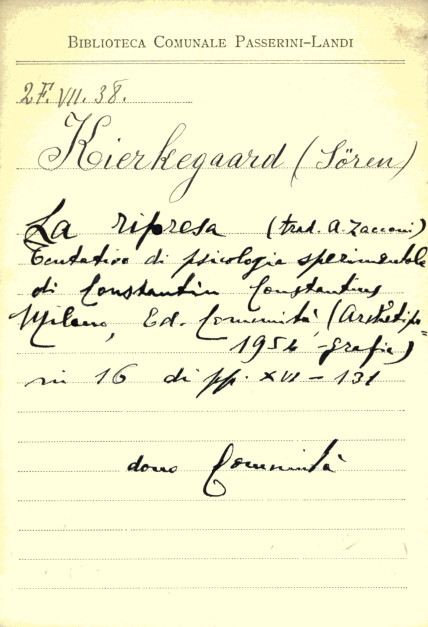 BIBLIOTECA COMUNALE PASSERINI-LANDI
2F.VII.38.
Kierkegaard (Sören)
La ripresa (trad. A. Zacconi)
Tentativo di psicologia sperimentale
di Constantin Constantius
Milano, Ed. Comunità, (Archetipo=
1954 -grafia)
in 16 di pp. XVI - 131
dono Comunità